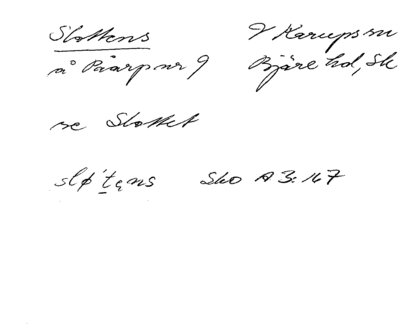 Slottens V Karups sn
å Påarp nr 9 Bjäre hd, Sk
se Slottet
slø't̲ęns Sko A 3:167